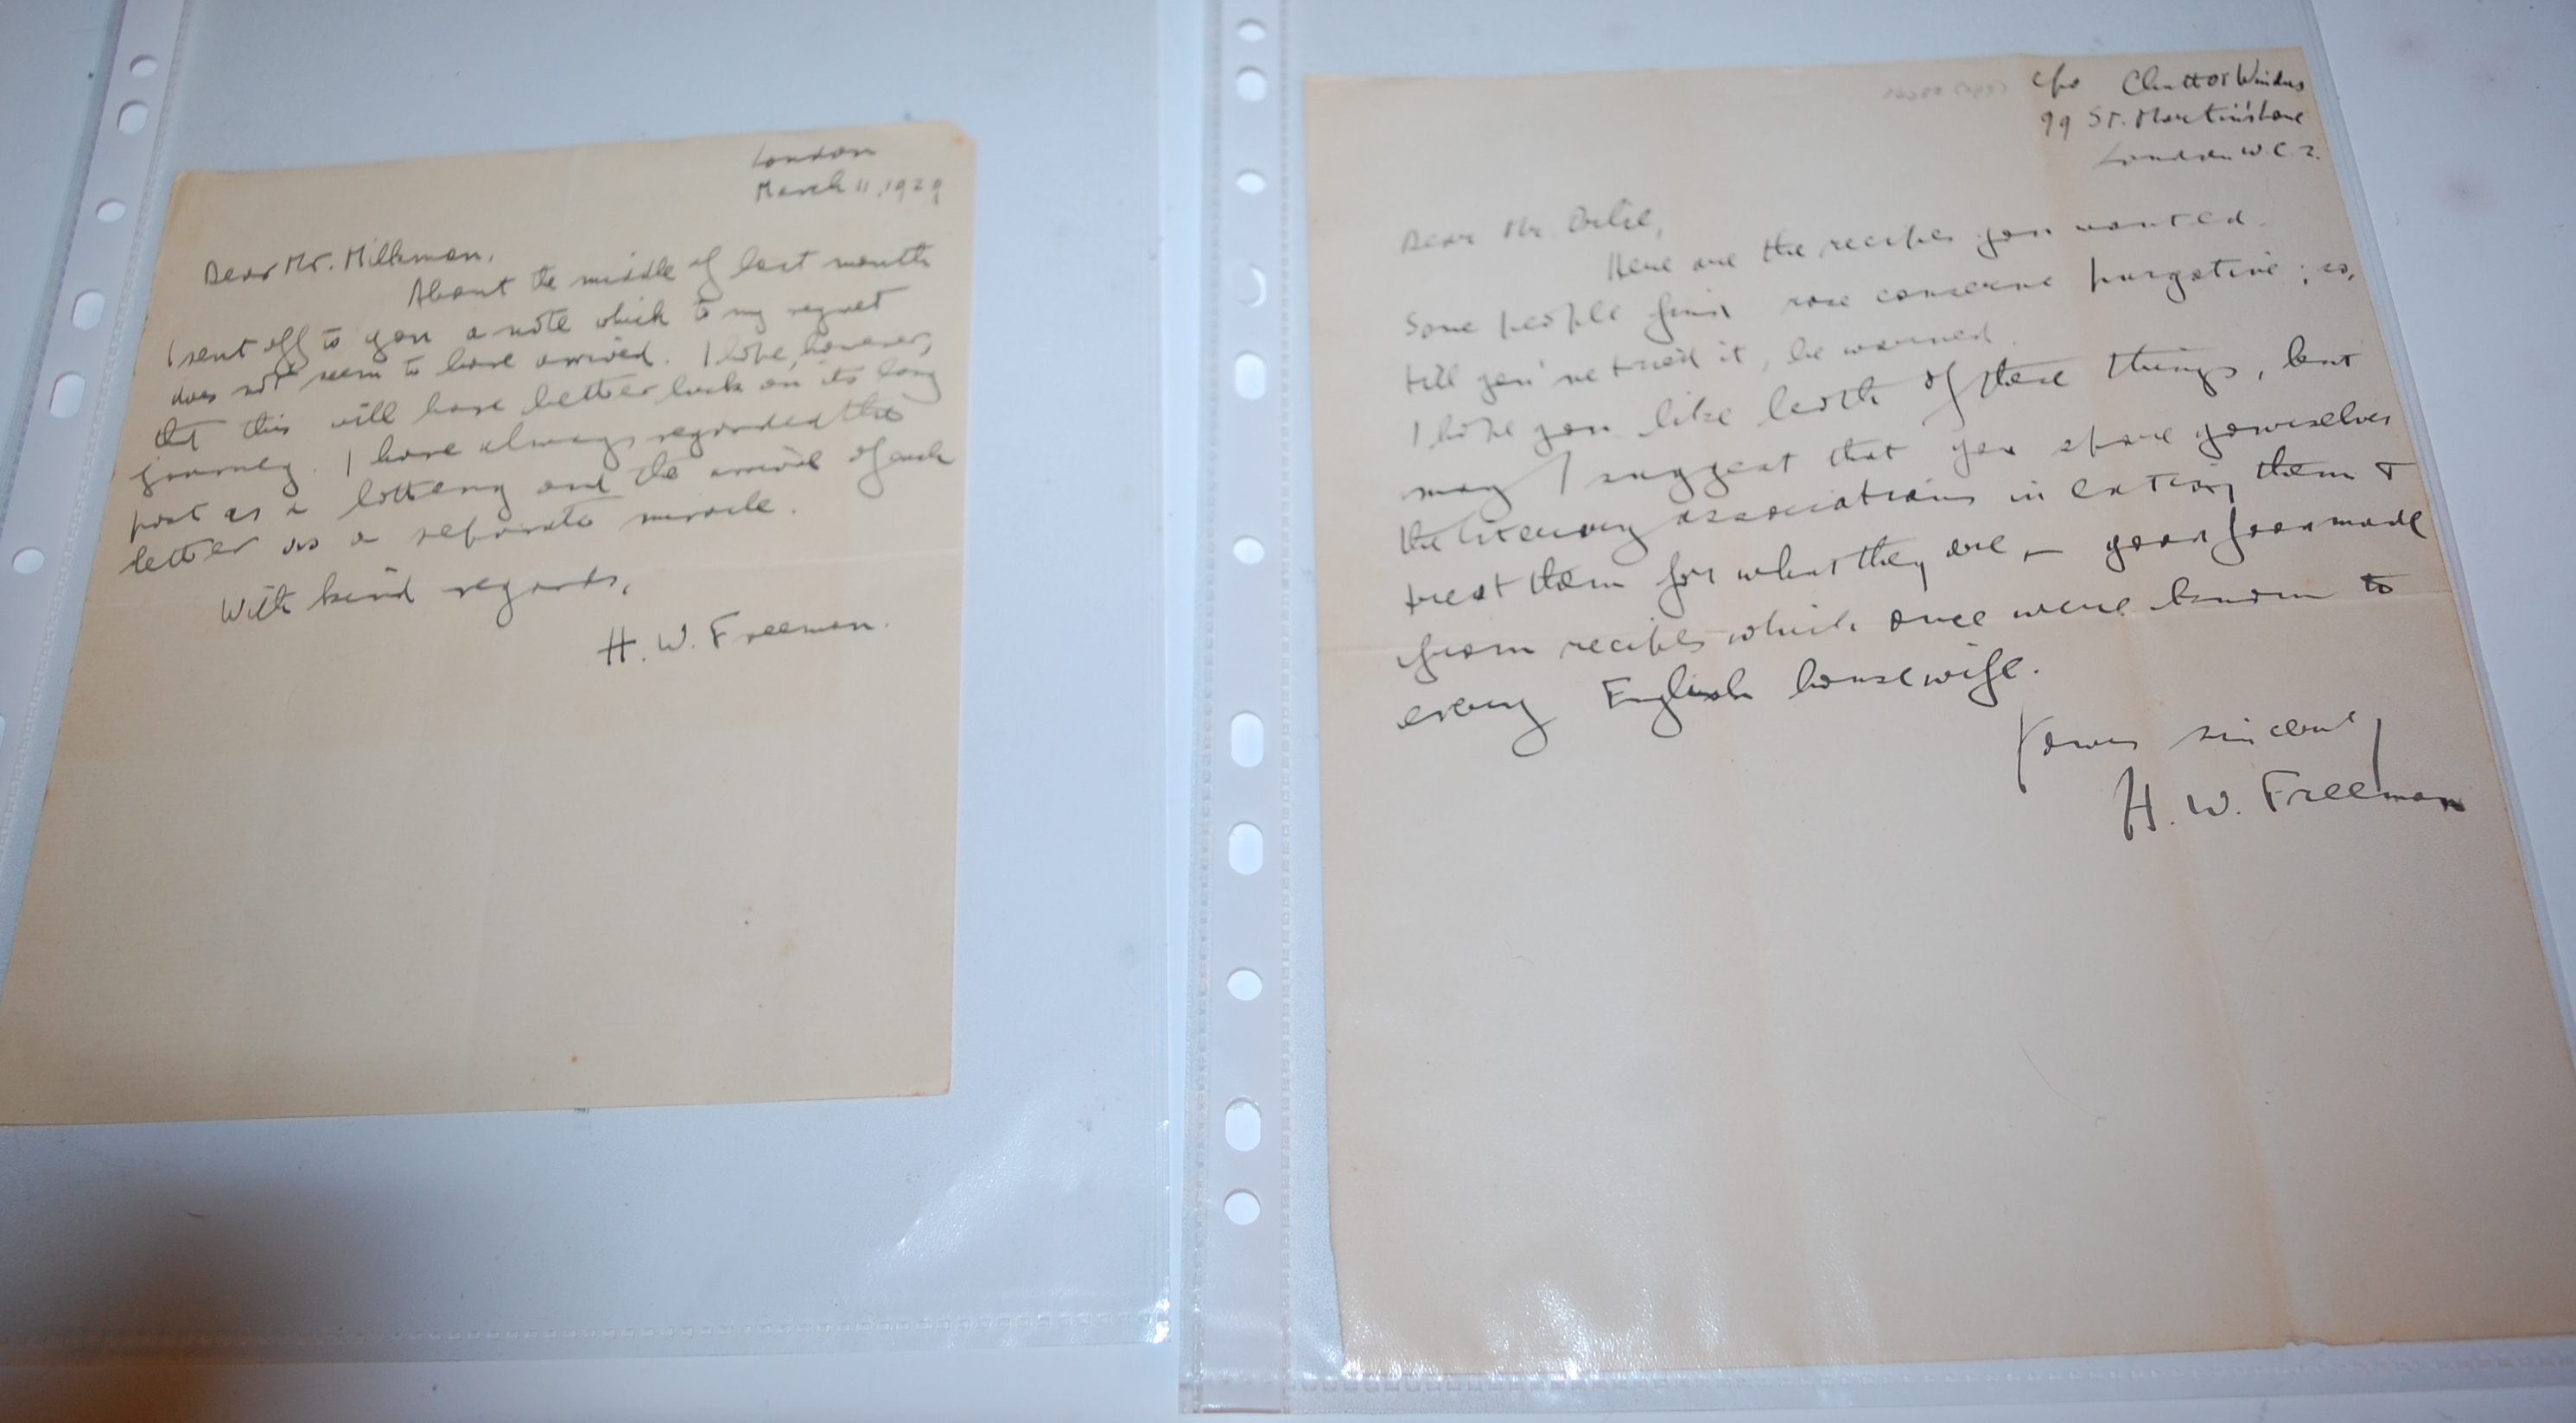 London
March 11, 1929
Dear Mr. Milkman,
About the middle of last month
I sent off to you a note which to my regret
does not seem to have arrived. I hope, however,
that this will have better luck on its long
journey. I have always regarded the
post as a lottery and the arrival of each
letter as a separate miracle.
With kind regards,
H. W. Freeman.
c/o Chatto & Windus
99 St. Martin's Lane
London W.C.2.
Dear Mr.
Here are the recipes you wanted.
Some people find rose conserve purgative; so,
till you've tried it, be warned.
I hope you like both of these things, but
may I suggest that you spare yourselves
the literary associations in eating them &
treat them for what they are, — good food made
from recipes which once were known to
every English housewife.
Yours sincerely
H. W. Freeman